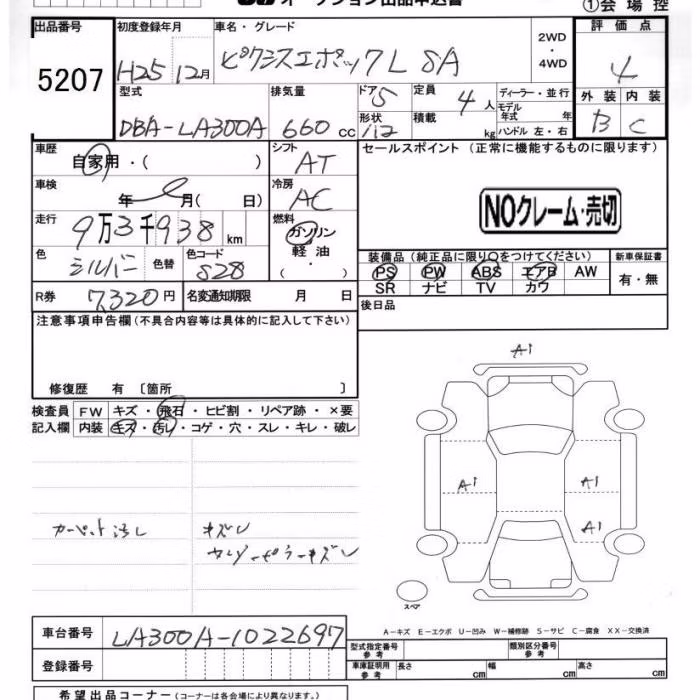 オークション出品申込書
①会場控
出品番号 5207
初度登録年月 H25 12月
車名・グレード ピクシスエポック L SA
2WD・4WD
評価点 4
外装 B 内装 C
型式 DBA-LA300A
排気量 660 cc
ドア 5
形状 /12
定員 4人
積載 kg
ディーラー・並行
モデル年式 年
ハンドル 左・右
車歴 自家用・( )
シフト AT
セールスポイント (正常に機能するものに限ります)
車検 年 月( 日)
冷房 AC
NOクレーム・売切
走行 9万3千938 km
燃料 ガソリン・軽油・( )
色 シルバー 色替
色コード S28
装備品 (純正品に限り○をつけてください)
新車保証書 有・無
PS PW ABS エアB AW
SR ナビ TV カワ
R券 7,320円
名変通知期限 月 日
後日品
注意事項申告欄 (不具合内容等は具体的に記入して下さい)
修復歴 有 [箇所 ]
検査員記入欄
FW キズ・飛石・ヒビ割・リペア跡・×要
内装 キズ・汚レ・コゲ・穴・スレ・キレ・破レ
A1
A1
A1
A1
カーペット汚レ
キズレ
スペア
A-キズ E-エクボ U-凹み W-補修跡 S-サビ C-腐食 XX-交換済
車台番号 LA300A-1022697
登録番号
型式指定番号 参考
類別区分番号 参考
車庫証明用 参考 長さ cm 幅 cm 高さ cm
希望出品コーナー (コーナーは各会場により異なります。)